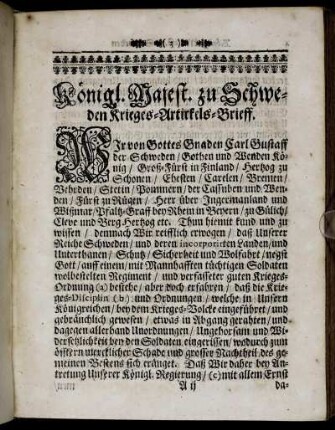 ( 3 )
Königl. Majest. zu Schwe-
den Krieges-Artickels-Brieff.
WIr von Gottes Gnaden Carl Gustaff
der Schweden / Gothen und Wenden Kö-
nig / Groß-Fürst in Finland / Hertzog zu
Schonen / Ehesten / Carelen / Bremen /
Vehrden / Stetin / Pommern / der Cassuben und Wen-
den / Fürst zu Rügen / Herr über Ingermanland und
Wißmar / Pfaltz-Graff bey Rhein in Beyern / zu Gülich /
Cleve und Berg Hertzog etc. Thun hiemit kund und zu
wissen / demnach Wir reifflich erwogen / daß Unserer
Reiche Schweden / und deren incorporirten Landen / und
Unterthanen / Schutz / Sicherheit und Wolfahrt / negst
Gott / auff einem / mit Mannhafften tüchtigen Soldaten
vollbesetzten Regiment / und verfasseter guten Krieges-
Ordnung (a) bestehe / aber doch erfahren / daß die Krie-
ges-Disciplin (b) und Ordnungen / welche in Unsern
Königreichen / bey dem Krieges-Volcke eingeführet / und
gebräuchlich gewesen / etwas in Abgang gerahten / und
dagegen allerhand Unordnungen / Ungehorsam und Wi-
dersetzlichkeit bey den Soldaten eingerissen / wodurch zum
öfftern mercklicher Schade und grosser Nachtheil des ge-
meinen Bestens sich eräuget. Daß Wir daher bey An-
tretung Unserer Königl. Regierung / (c) mit allem Ernst
A ij da-